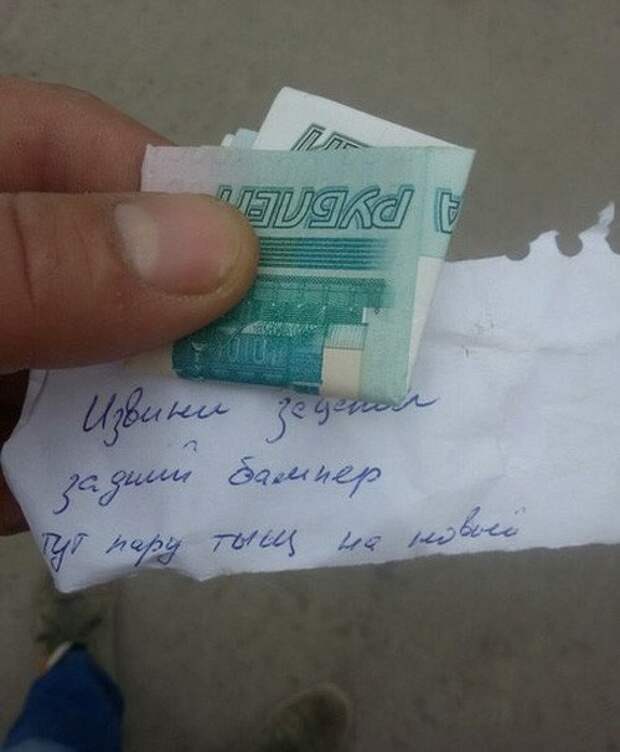 РУБЛЕЙ
Извини зацепил
задний бампер
тут пару тыщ на новый